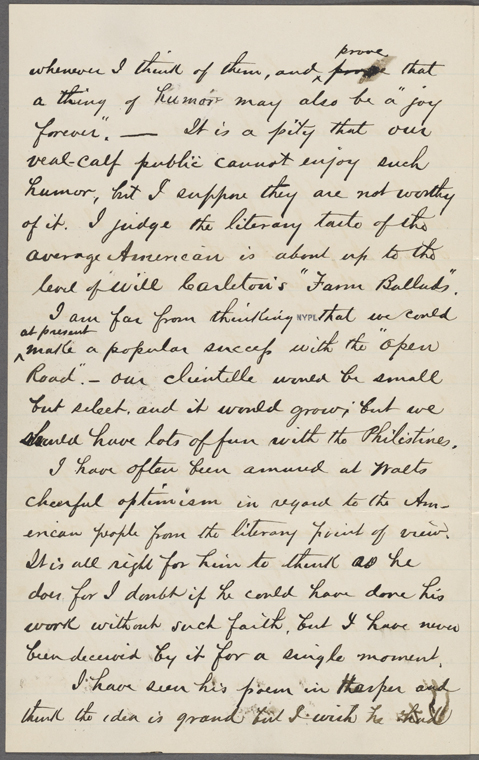 prove
whenever I think of them, and ‸ prove that
a thing of humor may also be a "joy
forever". — It is a pity that our
veal-calf public cannot enjoy such
humor, but I suppose they are not worthy
of it. I judge the literary taste of the
average American is about up to the
level of Will Carleton's "Farm Ballads".
I am far from thinking NYPL that we could
at present
‸ make a popular success with the "Open
Road". – our clientelle would be small
but select, and it would grow; but we
should have lots of fun with the Philistines.
I have often been amused at Walts
cheerful optimism in regard to the Am-
erican people from the literary point of view.
It is all right for him to think as he
does for I doubt if he could have done his
work without such faith, but I have never
been deceived by it for a single moment.
I have seen his poem in Harper and
think the idea is grand but I wish he